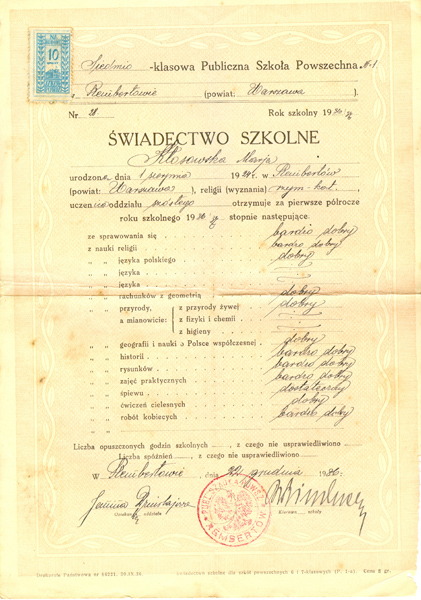 10
Siedmio -klasowa Publiczna Szkoła Powszechna № 1
z Rembertowie (powiat: Warszawa ).
Nr. 31 Rok szkolny 1936/7
ŚWIADECTWO SZKOLNE
Kłosowska Marja
urodzona dnia 1 sierpnia 1924 r. w Rembertów
(powiat: Warszawa ), religii (wyznania) rzym-kat.
uczeń oddziału szóstego otrzymuje za pierwsze półrocze
roku szkolnego 1936/7 stopnie następujące:
ze sprawowania się bardzo dobry
z nauki religii bardzo dobry
„ „ języka polskiego dobry
„ „ języka
„ „ języka
„ „ rachunków z geometrią dobry
„ „ przyrody, z przyrody żywej dobry
a mianowicie: z fizyki i chemii
z higieny
„ „ geografii i nauki o Polsce współczesnej dobry
„ „ historii bardzo dobry
„ „ rysunków bardzo dobry
„ „ zajęć praktycznych bardzo dobry
„ „ śpiewu dostateczny
„ „ ćwiczeń cielesnych dobry
„ „ robót kobiecych bardzo dobry
„ „
Liczba opuszczonych godzin szkolnych , z czego nie usprawiedliwiono
Liczba spóźnień , z czego nie usprawiedliwiono
W Rembertowie , dnia 22 grudnia 1936.
REMBERTÓW
oddziału
Kierown. szkoły